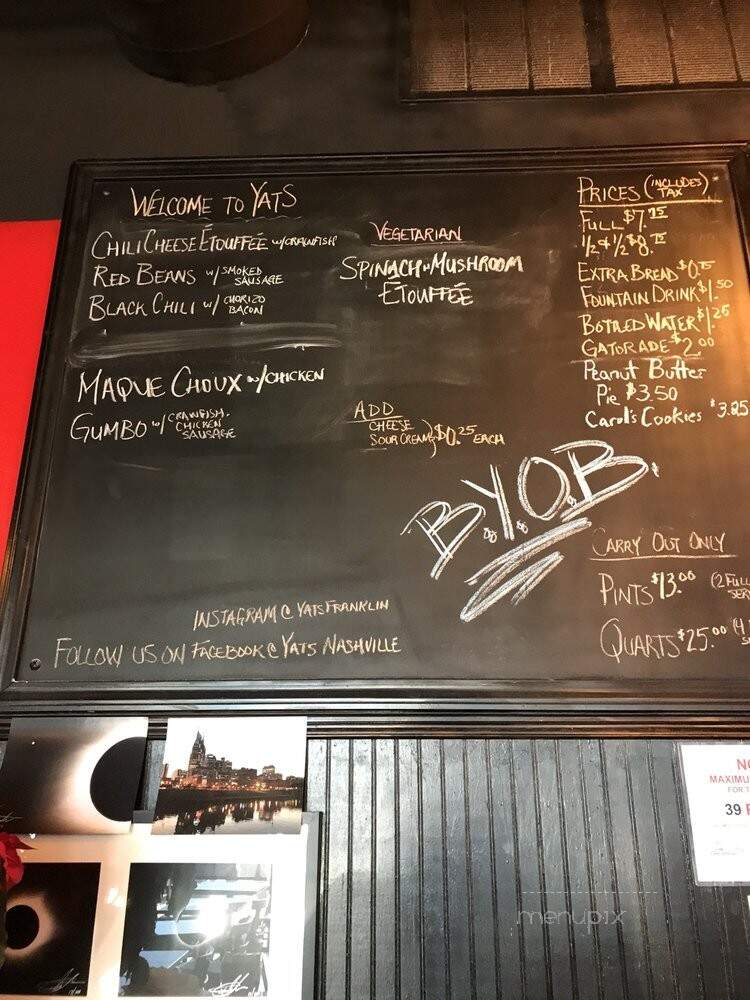 WELCOME TO YATS
CHILI CHEESE ÉTOUFFÉE W/CRAWFISH
RED BEANS W/ SMOKED
SAUSAGE
BLACK CHILI W/ CHORIZO
BACON
MAQUE CHOUX W/CHICKEN
GUMBO W/ CRAWFISH,
CHICKEN
SAUSAGE
VEGETARIAN
SPINACH-MUSHROOM
ÉTOUFFÉE
ADD
CHEESE
SOUR CREAM } $0.25 EACH
PRICES (INCLUDES
TAX)
FULL $7.
½ & ½ $8.
EXTRA BREAD
FOUNTAIN DRINK $1.50
BOTTLED WATER $1.25
GATORADE $2.00
Peanut Butter
Pie $3.50
Carol's Cookies $3.25
B.Y.O.B.
CARRY OUT ONLY
PINTS $13.00 (2 FULL
QUARTS $25.00
INSTAGRAM @ YATSFRANKLIN
FOLLOW US ON FACEBOOK @ YATS NASHVILLE
MAXIMU
39
menupix